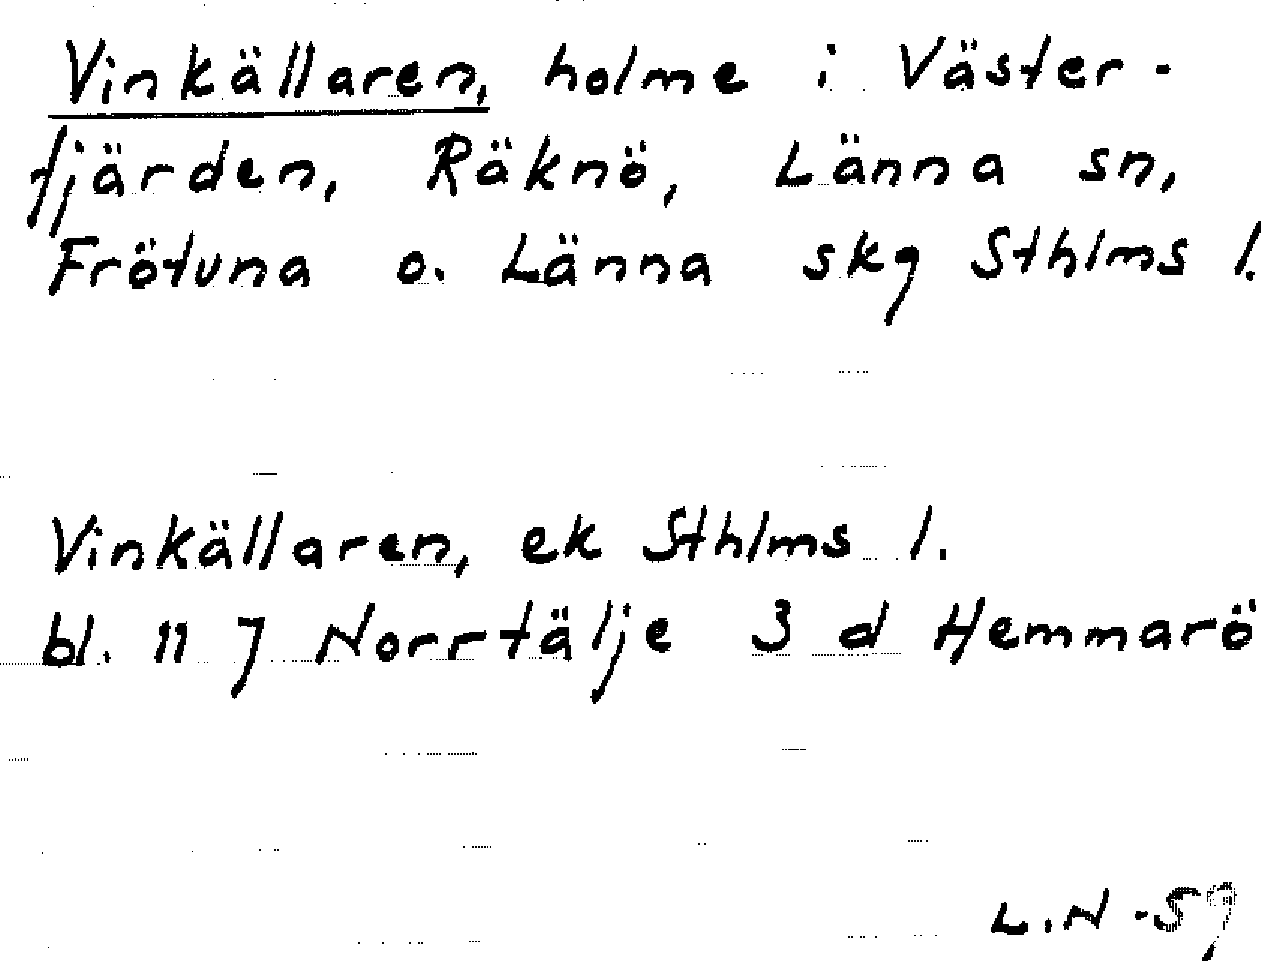 Vinkällaren, holme i Väster-
fjärden, Räknö, Länna sn,
Frötuna o. Länna skg Sthlms l.
Vinkällaren, ek Sthlms l.
bl. 11 J Norrtälje 3 d Hemmarö
L.N -59